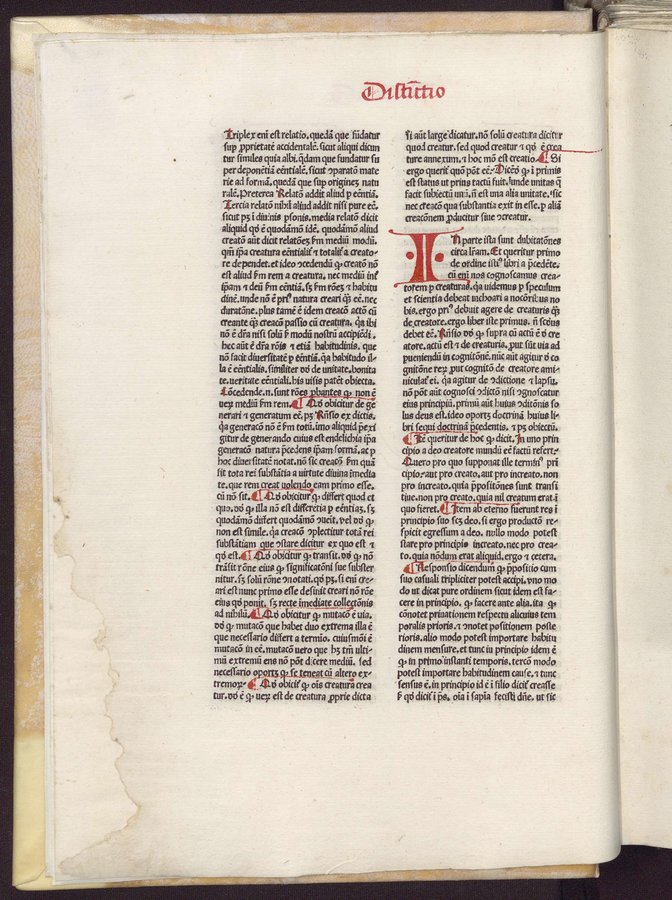 Distīctio
Triplex em̄ est relatio. quedā que fūdatur
sup ꝓprietatē accidentalē. sicut aliqui dicun
tur similes quia albi. q̄dam que fundatur su
per depōntiā eēntialē. sicut ꝯparatō mate
rie ad formā. quedā que sup originez natu
ralē. Preterea Relatō addit aliud ꝑ eēntiā.
Tercia relatō nihil aliud addit nisi pure eē.
sicut pꝫ ī diuinis ꝑsonis. media relatō dicit
aliquid qd̓ ē quodāmō idē. quodāmō aliud
creatō aūt dicit relatōez ẜm mediū modū.
qm̄ ip̄a creatura eēntialit̓ ⁊ totalit̓ a creato
re dependet. et ideo ꝯcedendū ꝙ creatō nō
est aliud ẜm rem a creatura. nec mediū int̓
ip̄am ⁊ deū ẜm eēntiā. sꝫ ẜm rōeꝫ ⁊ habitu
dinē. unde nō ē priꝰ natura creari ꝙ̄ eē. nec
duratōne. plus tamē ē idem creatō actō cū
creante ꝙ̄ creacō passio cū creatura. q̄a ibi
nō ē dr̄a nisi solū ẜm modū nostrū accipiēdi.
hec aūt ē dr̄a rōis ⁊ etiā habitudinis. que
nō facit diuersitatē ꝑ eēntiā. q̄a habitudo il-
la ē eēntialis. similiter vō de unitate. bonita
te. veritate eēntiali. his uisis patēt obiecta.
Cōcedende. n. sunt rōes ꝓbantes ꝙ non ē
uerꝫ mediū ẜm rem. ¶ Qd̓ obicitur de ge
nerari ⁊ generatum eē. pꝫ Rn̄sio ex dictis.
q̄a generacō nō ē ẜm totū. imo aliquid p̄exi
gitur de generando cuius est endelichia ip̄a
generacō natura p̄cedens ip̄am formā. ac ꝑ
hoc diuersitatē notat. nō sic creacō ẜm quā
sit tota rei substātia a virtute diuina īmedia
te. que rem creat volendo eam primo esse.
cū nō sit. ¶ Qd̓ obicitur ꝙ differt quod et
quo. vō ꝙ illa nō est differētia ꝑ eēntiaꝫ. sꝫ
quodāmō differt quodāmō ꝯueit. vel vō ꝙ
non est simile. q̄a creacō ꝯplectitur totā rei
substātiam que ꝯstare dicitur ex quo est ⁊
qd̓ est. ¶ Qd̓ obicitur ꝙ transit. vō ꝙ nō
trāsit rōne eius ꝙ significatōni sue subster
nitur. sꝫ solū rōne ꝯnotati. qd̓ pꝫ. si em̄ cre-
ari est nunc primo esse desinit creari nō rōne
eius qd̓ ponit. sꝫ recte īmediate collectōnis
ad nihilū. ¶ Qd̓ obicitur ꝙ mutacō ē via.
vō ꝙ mutacō que habet duo extrema illa ē
que necessario differt a termīo. cuiusmōi ē
mutacō in eē. mutacō vero que hꝫ tm̄ ulti-
mū extremū ens nō pōt dicere mediū. sed
necessario oportꝫ ꝙ se teneat cū altero ex-
tremoꝝ. ¶ Qd̓ obicit̓ ꝙ oīs creatura crea
tur. vō ē ꝙ uerꝫ est de creatura ꝓprie dicta
si aūt large dicatur. nō solū creatura dicitur
quod creatur. sed quod creatur ⁊ qd̓ ē crea
ture annexum. ⁊ hoc mō est creatio. ¶ Si
ergo querit̓ quō pōt eē. Dicēd̓ ꝙ ī primis
est status ut prius tactū fuit. unde unitas ꝙ̄
facit subiectū unū. n̄ est una alia unitate. sic
nec creacō qua substantia exit in esse. ꝑ aliā
creacōnem ꝓducitur siue ꝯcreatur.
IN parte ista sunt dubitatōnes
circa lr̄am. Et queritur primo
de ordine istiꝰ libri a p̄cedēte.
cū em̄ nos cognoscamus crea-
torem ꝑ creaturas. q̄a videmus ꝑ speculum
et scientia debeat inchoari a nocōribus no
bis. ergo priꝰ debuit agere de creaturis ꝙ̄
de creatore. ergo liber iste primus. n̄ scdus
debet eē. Rn̄sio vō ꝙ supra cū actū ē d̓ cre
atore. actū est ⁊ de creaturis. put sūt via ad
pueniendū in cognitōnē. nūc aūt agitur d̓ co
gnitōne rerꝫ put cognitō de creatore ami-
niculat̓ ei. q̄a agitur de ꝯdictione ⁊ lapsu.
nō pōt aūt cognosci ꝯdictō nisi ꝯgnoscatur
eius principiū. primū aūt huius ꝯditōnis so
lus deus est. ideo oportꝫ doctrinā huius li-
bri sequi doctrinā p̄cedentis. ⁊ pꝫ obiectū.
¶ Itē queritur de hoc ꝙ dicit. In uno prin
cipio a deo creatore mundū eē factū refert.
Quero pro quo supponat ille termīsꝰ prī
cipio. aut pro creato. aut pro increato. non
pro increato. quia p̄positōnes sunt transi
tiue. non pro creato. quia nil creatum erat ī
quo fieret. ¶ Item ab eterno fuerunt res ī
principio suo sꝫ deo. si ergo productō re-
spicit egressum a deo. nullo modo potest
stare pro principio increato. nec pro crea-
to. quia nōdum erat aliquid. ergo ⁊ cetera.
¶ Responsio dicendum ꝙ p̄positio cum
suo casuali tripliciter potest accipi. vno mo
do ut dicat pure ordinem sicut idem est fa-
cere in principio. ꝙ facere ante alia. ita ꝙ
cōnotet priuationem respectu alicuius tem
poralis prioris. ⁊ ꝯnotet positionem poste
rioris. alio modo potest importare habitu
dinem mensure. et tunc in principio idem ē
ꝙ in primo instanti temporis. tercō modo
potest importare habitudinem cause. ⁊ tunc
sensus ē. in principio id ē ī filio dicit̓ creasse
ẜm qd̓ dicit̓ ī ps. oīa ī sapīa fecisti dn̄e. ut sic